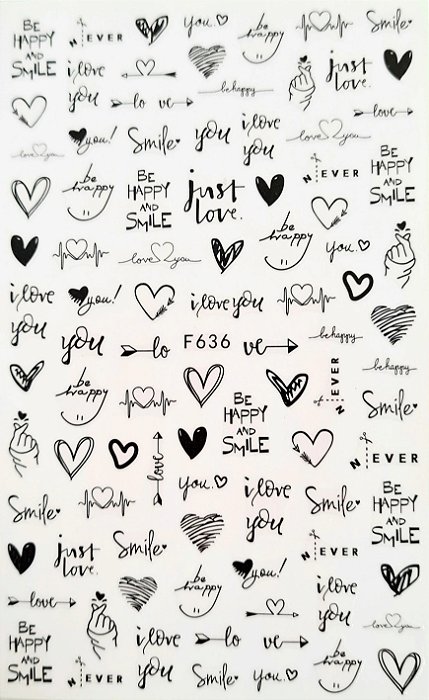 BE
HAPPY
AND
SMILE
N EVER
you.
be
happy
Smile
i love
you
just
love.
lo ve
be happy
love
love you
you!
Smile
you
i love
you
love you
BE
HAPPY
AND
SMILE
be
happy
BE
HAPPY
AND
SMILE
just
love.
N EVER
be
happy
love you
you.
i love
you
you!
i love you
you
lo
F636
ve
be happy
be
happy
BE
HAPPY
AND
SMILE
N EVER
be happy
Smile
love
N EVER
you.
i love
you
Smile
BE
HAPPY
AND
SMILE
Smile
just
love.
Smile
N EVER
be
happy
you!
i love
you
love
love you
BE
HAPPY
AND
SMILE
N EVER
i love
you
lo ve
Smile
you.
be
happy